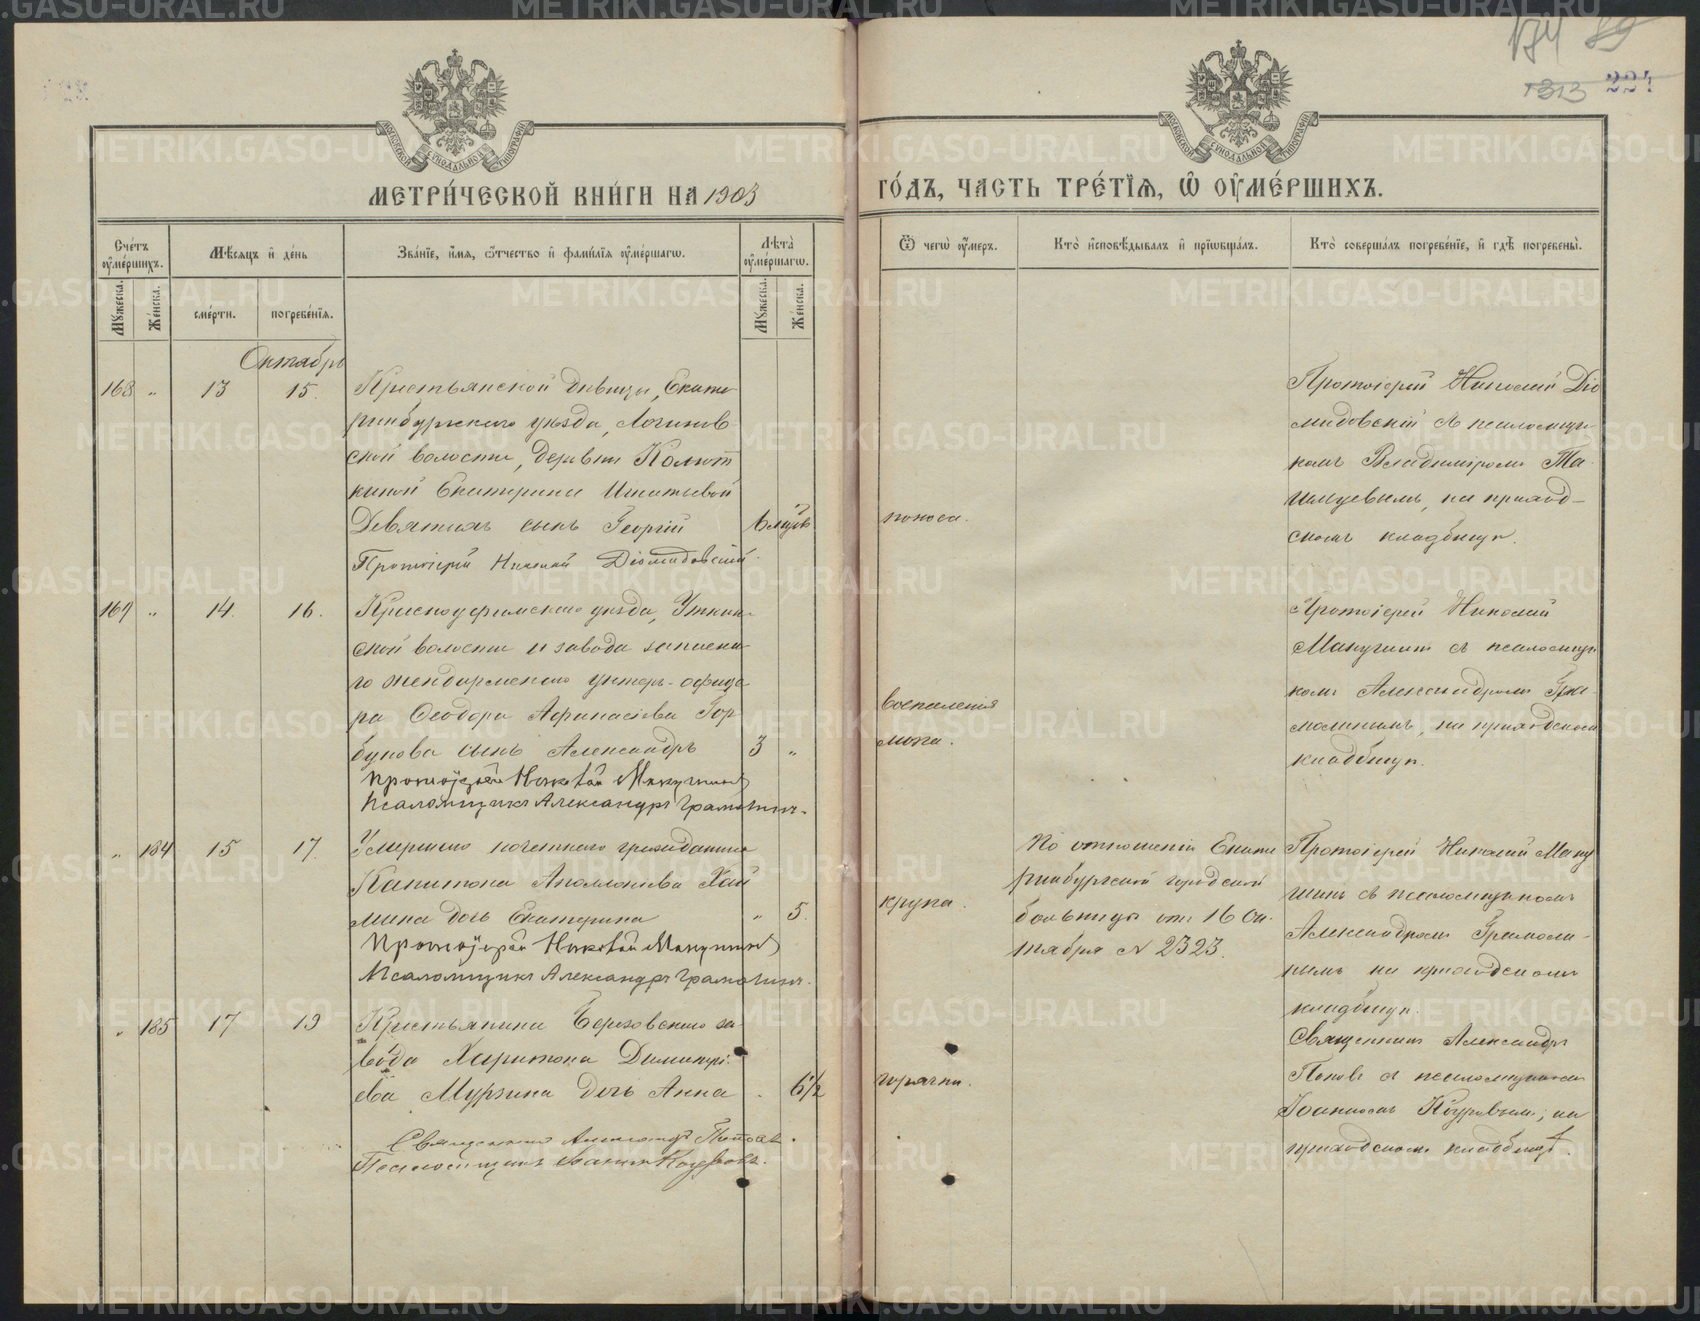 МЕТРИ́ЧЕСКОЙ КНИ́ГИ НА 1903
ГО́ДЪ, ЧАСТЬ ТРЕ́ТІЯ, Ѡ ОУ҆МЕ́РШИХЪ.
МОСКОВСКОЙ СѴНОДАЛЬНОЙ ТИПОГРАФІИ
МОСКОВСКОЙ СѴНОДАЛЬНОЙ ТИПОГРАФІИ
Сче́тъ оу҆ме́ршихъ.
Мꙋ́жеска.
Же́нска.
Мѣ́сяцъ и҆ де́нь
сме́рти.
погребе́нїя.
Зва́нїе, и҆́мя, ѻ҆́тчество и҆ фами́лїя оу҆ме́ршагѡ.
Лѣ́та оу҆ме́ршагѡ.
Мꙋ́жеска.
Же́нска.
Ѿ чегѡ̀ оу҆́меръ.
Кто̀ и҆сповѣ́дывалъ и҆ прїѡбща́лъ.
Кто̀ соверша́лъ погребе́нїе, и҆ гдѣ̀ погребены̀.
Октябрь
168 " 13 15.
Крестьянской дѣвицы, Екате
ринбургскаго уѣзда, Логинов
ской волости, деревни Колют
киной Екатерины Игнатьевой
Девятихъ сынъ Георгій
Протоіерей Николай Діомидовскій.
6 мцѣв
поноса.
Протоіерей Николай Діо
мидовскій съ псаломщи
комъ Владиміромъ
на приход-
скомъ кладбищѣ.
169 " 14. 16.
Красноуфимскаго уѣзда, Уткин-
ской волости и завода запасна-
го жандармскаго унтеръ-офице
ра Ѳеодора Афанасіева Гор
бунова сынъ Александръ
3 "
Протоіерей Николай Макушинъ
Псаломщикъ Александръ Грамолинъ.
воспаленія
мозга.
Протоіерей Николай
Макушинъ съ псаломщи
комъ Александромъ Гра-
молинымъ, на приходскомъ
кладбищѣ.
" 184 15 17.
Умершаго почетнаго гражданина
Капитона Аполлоніева Хай
мина дочь Екатерина
" 5.
Протоіерей Николай Макушинъ
Псаломщикъ Александръ Грамолинъ.
крупа.
По отношенію Екате
ринбургской городской
больницы отъ 16 Ок-
тября № 2323.
Протоіерей Николай Маку
шинъ съ псаломщикомъ
Александромъ Грамоли-
нымъ на приходскомъ
кладбищѣ.
" 185 17 19
Крестьянина Березовскаго за-
вода Харитона Димитрі-
ева Мурзина дочь Анна
. 6½
Священникъ Александръ Поповъ.
Псаломщикъ Іоаннъ Козыревъ.
горячки.
Священникъ Александръ
Поповъ съ псаломщикомъ
Іоанномъ Козыревымъ, на
приходскомъ кладбищѣ.